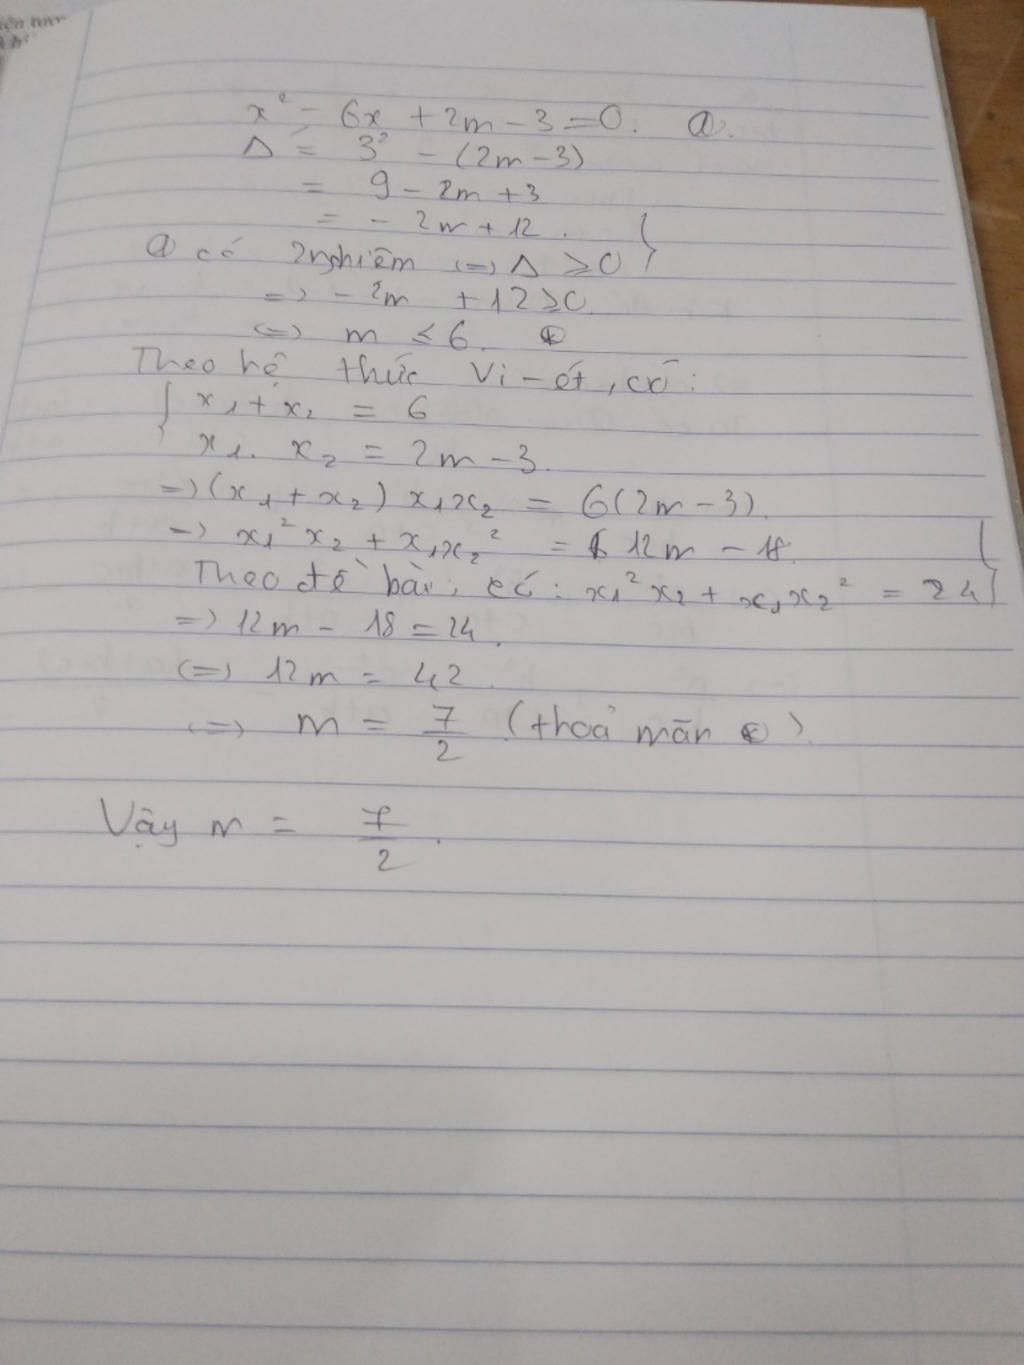 x² - 6x + 2m - 3 = 0. ①.
Δ' = 3² - (2m - 3)
= 9 - 2m + 3
= - 2m + 12.
① có 2 nghiệm <=> Δ ≥ 0
=> - 2m + 12 ≥ 0.
<=> m ≤ 6.
Theo hệ thức Vi-ét, có:
{ x₁ + x₂ = 6
x₁. x₂ = 2m - 3.
=> (x₁ + x₂) x₁x₂ = 6(2m - 3).
=> x₁²x₂ + x₁x₂² = 12m - 18.
Theo đề bài, có: x₁²x₂ + x₁x₂² = 24
=> 12m - 18 = 24.
<=> 12m = 42.
<=> m = 7/2 (thoả mãn )
Vậy m = 7/2.